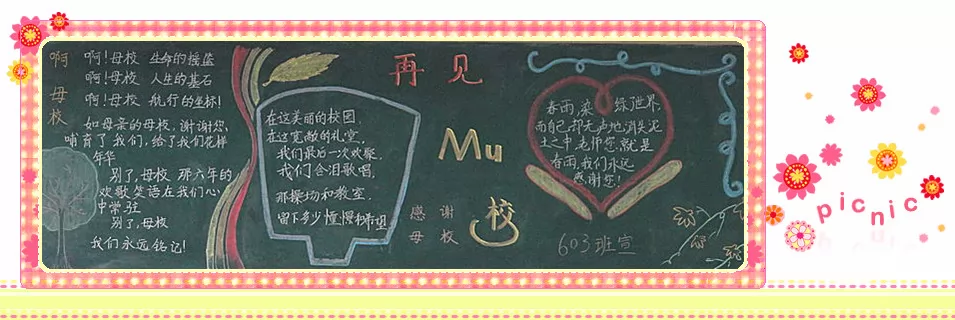 啊
母
校
啊!母校 生命的摇篮
啊!母校 人生的基石
啊!母校 航行的坐标!
如母亲的母校,谢谢您,
哺育了我们,给了我们花样
年华
别了,母校 那六年的
欢歌笑语在我们心
中常驻
别了,母校
我们永远铭记!
在这美丽的校园,
在这宽敞的礼堂,
我们最后一次欢聚,
我们含泪歌唱,
那操场和教室,
留下多少憧憬和希望
再见
Mu
校
感谢
母校
春雨,染绿世界,
而自己,却无声地消失泥
土之中,老师您,就是
春雨,我们永远
感谢您!
603班宣
picnic